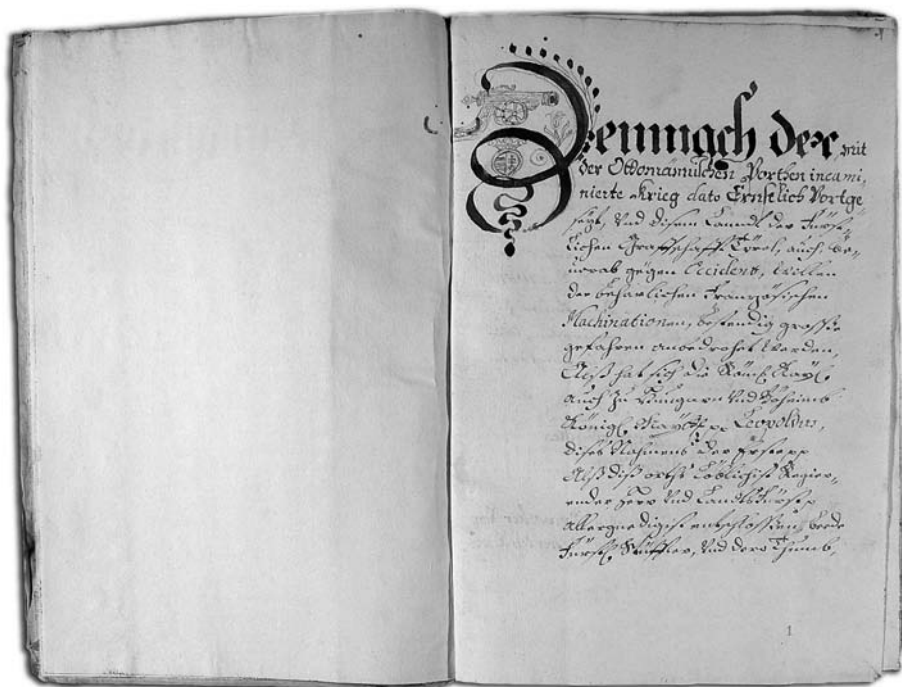 Demnach der, mit
der Ottomanischen Porthen incami„
nierte Krieg dato Ernstlich Vortge„
sezt, Vnd disem Landt der Fürst„
lichen Graffschafft Tyrol, auch, be„
uorab gegen Occident, willen
der beharlichen Französischen
Machinationen, bestendig grosse
gefahren anbedrohet werden,
Alß hat sich die Röm: Kay:
auch zu Hungarn Vnd Boheimb
König: May: pp. Leopoldus,
dises Nahmens der Erste pp
Alß diß orths Löblichist Regier„
ender Herr Vnd Landtsfürst pp
allergnedigist entschlossen, beede
Fürst: Stüffter, Vnd dero Thumb,
1